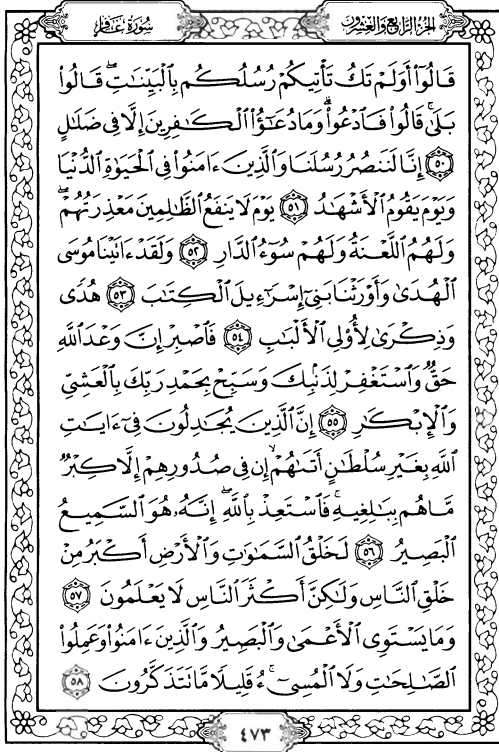 سُورَةُ غَافِرٍ الجُزْءُ الرَّابِعُ وَالعِشْرُونَ
قَالُوٓاْ أَوَلَمْ تَكُ تَأْتِيكُمْ رُسُلُكُم بِٱلْبَيِّنَٰتِ ۖ قَالُواْ
بَلَىٰ ۚ قَالُواْ فَٱدْعُواْ ۗ وَمَا دُعَٰٓؤُاْ ٱلْكَٰفِرِينَ إِلَّا فِى ضَلَٰلٍ
٥٠ إِنَّا لَنَنصُرُ رُسُلَنَا وَٱلَّذِينَ ءَامَنُواْ فِى ٱلْحَيَوٰةِ ٱلدُّنْيَا
وَيَوْمَ يَقُومُ ٱلْأَشْهَٰدُ ٥١ يَوْمَ لَا يَنفَعُ ٱلظَّٰلِمِينَ مَعْذِرَتُهُمْ ۖ
وَلَهُمُ ٱللَّعْنَةُ وَلَهُمْ سُوٓءُ ٱلدَّارِ ٥٢ وَلَقَدْ ءَاتَيْنَا مُوسَى
ٱلْهُدَىٰ وَأَوْرَثْنَا بَنِىٓ إِسْرَٰٓءِيلَ ٱلْكِتَٰبَ ٥٣ هُدًى
وَذِكْرَىٰ لِأُوْلِى ٱلْأَلْبَٰبِ ٥٤ فَٱصْبِرْ إِنَّ وَعْدَ ٱللَّهِ
حَقٌّ وَٱسْتَغْفِرْ لِذَنۢبِكَ وَسَبِّحْ بِحَمْدِ رَبِّكَ بِٱلْعَشِىِّ
وَٱلْإِبْكَٰرِ ٥٥ إِنَّ ٱلَّذِينَ يُجَٰدِلُونَ فِىٓ ءَايَٰتِ
ٱللَّهِ بِغَيْرِ سُلْطَٰنٍ أَتَىٰهُمْ ۙ إِن فِى صُدُورِهِمْ إِلَّا كِبْرٌ
مَّا هُم بِبَٰلِغِيهِ ۚ فَٱسْتَعِذْ بِٱللَّهِ ۖ إِنَّهُۥ هُوَ ٱلسَّمِيعُ
ٱلْبَصِيرُ ٥٦ لَخَلْقُ ٱلسَّمَٰوَٰتِ وَٱلْأَرْضِ أَكْبَرُ مِنْ
خَلْقِ ٱلنَّاسِ وَلَٰكِنَّ أَكْثَرَ ٱلنَّاسِ لَا يَعْلَمُونَ ٥٧
وَمَا يَسْتَوِى ٱلْأَعْمَىٰ وَٱلْبَصِيرُ وَٱلَّذِينَ ءَامَنُواْ وَعَمِلُواْ
ٱلصَّٰلِحَٰتِ وَلَا ٱلْمُسِىٓءُ ۚ قَلِيلًا مَّا تَتَذَكَّرُونَ ٥٨
٤٧٣